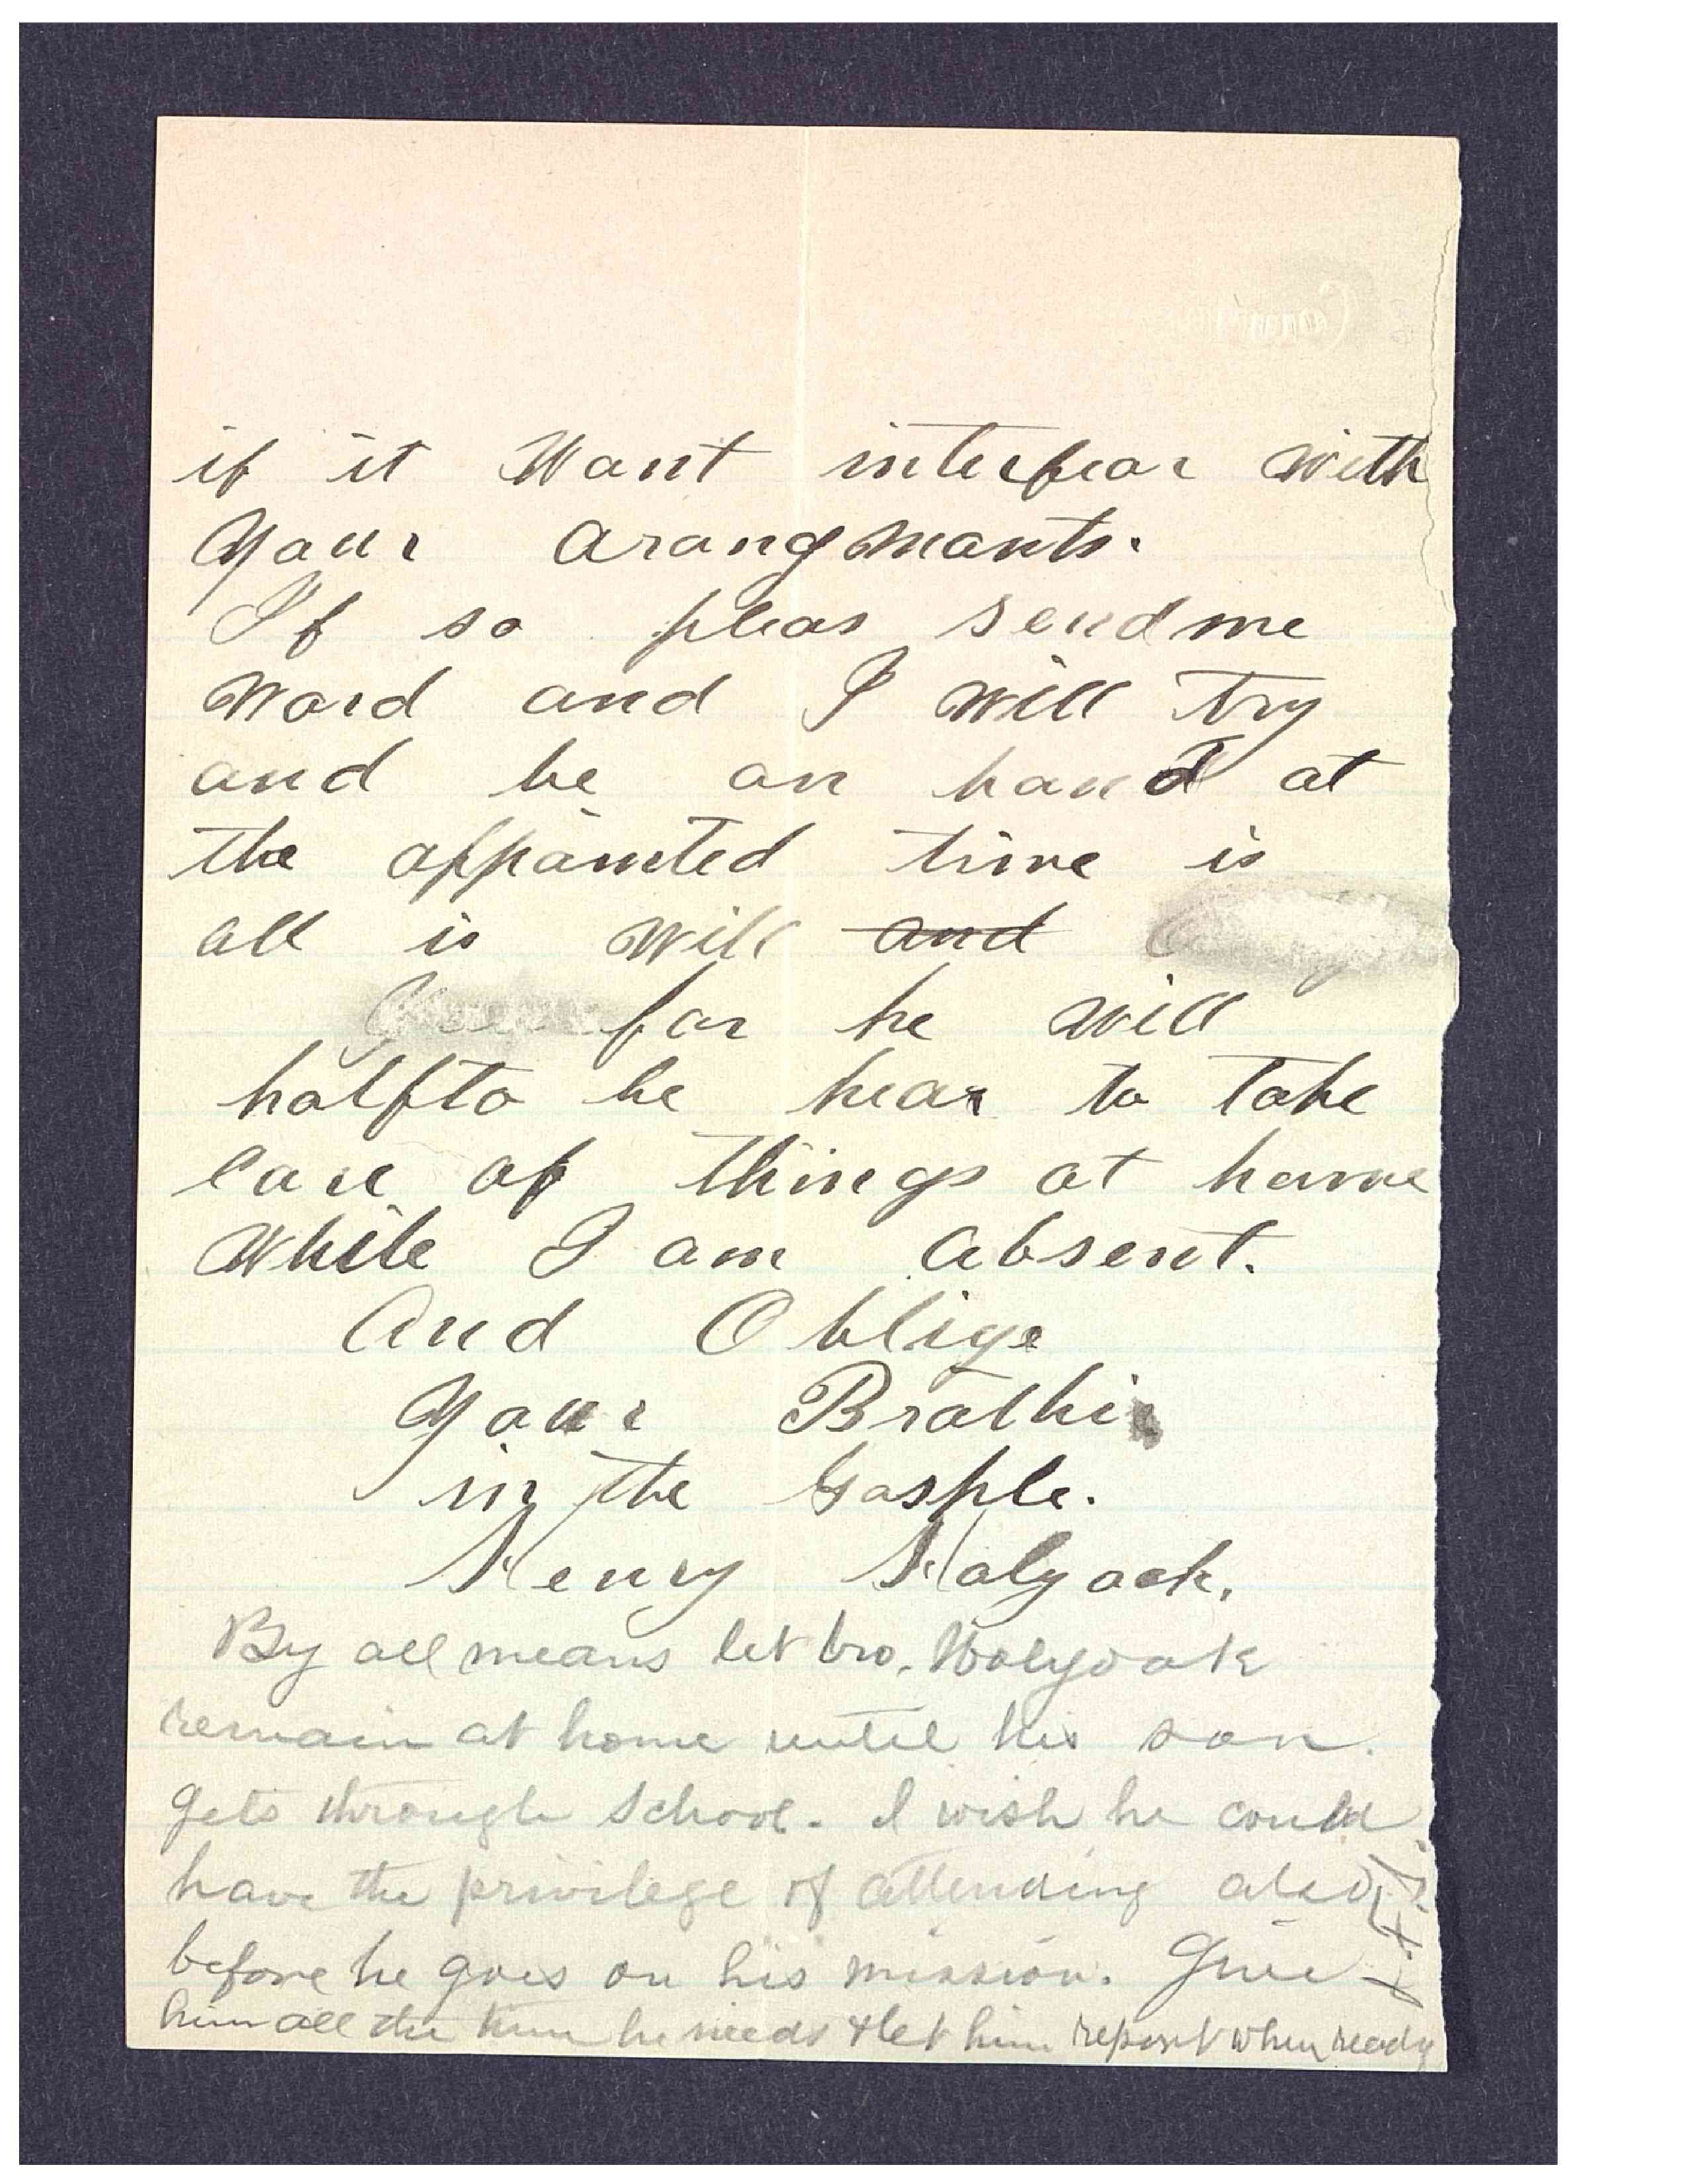 if it Want interfear with
Your Arangments.
If so pleas send me
Word and I will try
and be on hand at
the appointed time is
all is will and
for he will
halfto be hear to take
care of things at home
While I am Absent.
And Oblige
Your Brother
in the Gosple.
Henry Holyoak.
By all means let bro. Holyoak
remain at home until his son
gets through school. I wish he could
have the privilege of attending also
before he goes on his mission. Give
him all the time he needs & let him report when ready
J.F.S.